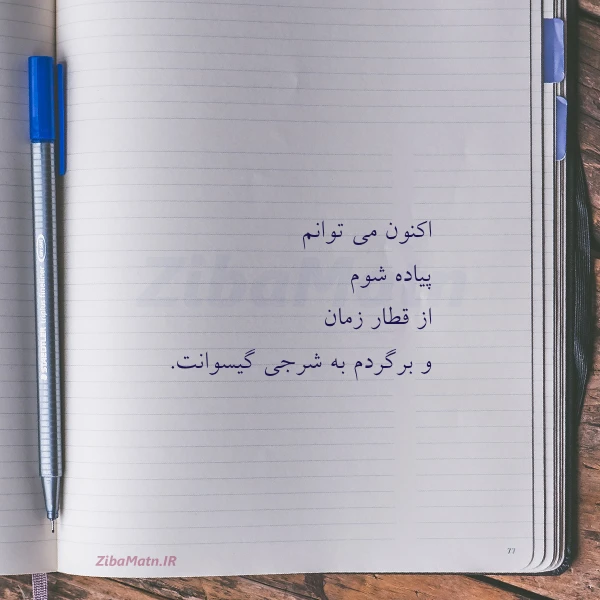 اکنون می توانم
پیاده شوم
از قطار زمان
و برگردم به شرجی گیسوانت.
ZibaMatn
77
ZibaMatn.IR